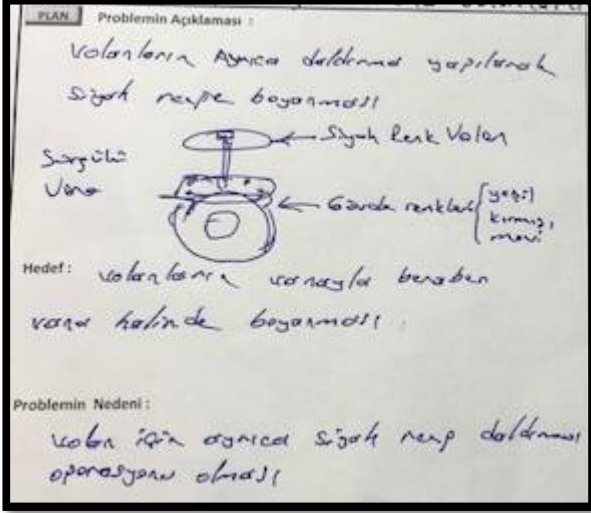 PLAN
Problemin Açıklaması :
Volanların Ayrıca daldırma yapılarak
Siyah renge boyanması
Siyah Renk Volan
Sürgülü
Vana
Gövde renkleri
yeşil
kırmızı,
mavi
Hedef :
volanların vanayla beraber
vana halinde boyanması
Problemin Nedeni :
volan için ayrıca siyah renge daldırma
operasyonu olması